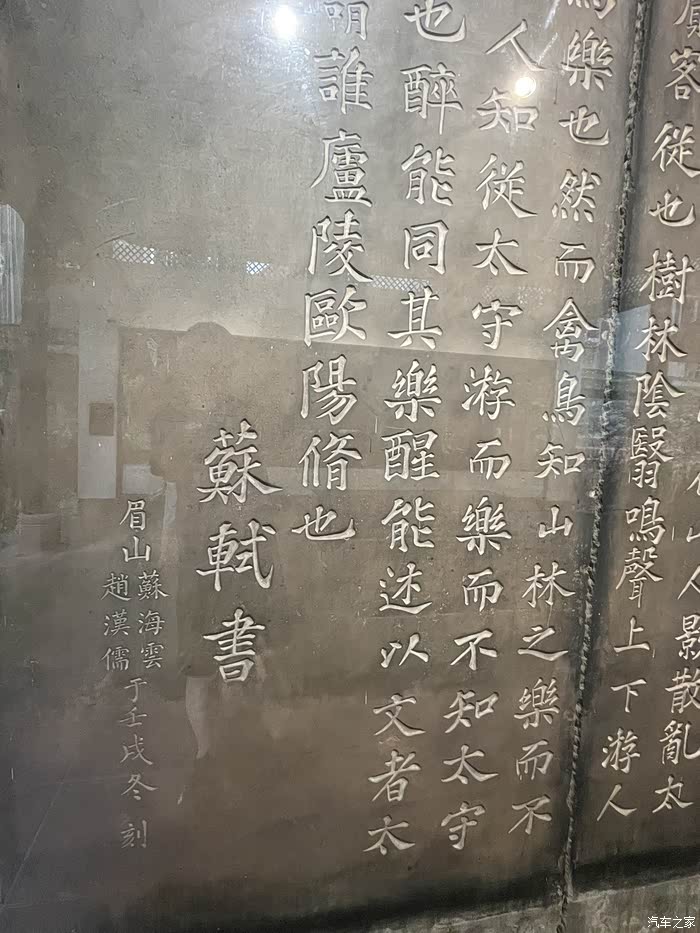 山人影散亂太
賓客從也樹林陰翳鳴聲上下游人
樂也然而禽鳥知山林之樂而不
人知從太守游而樂而不知太守
也醉能同其樂醒能述以文者太
誰廬陵歐陽脩也
蘇軾書
眉山蘇海雲趙漢儒于壬戌冬刻
汽车之家